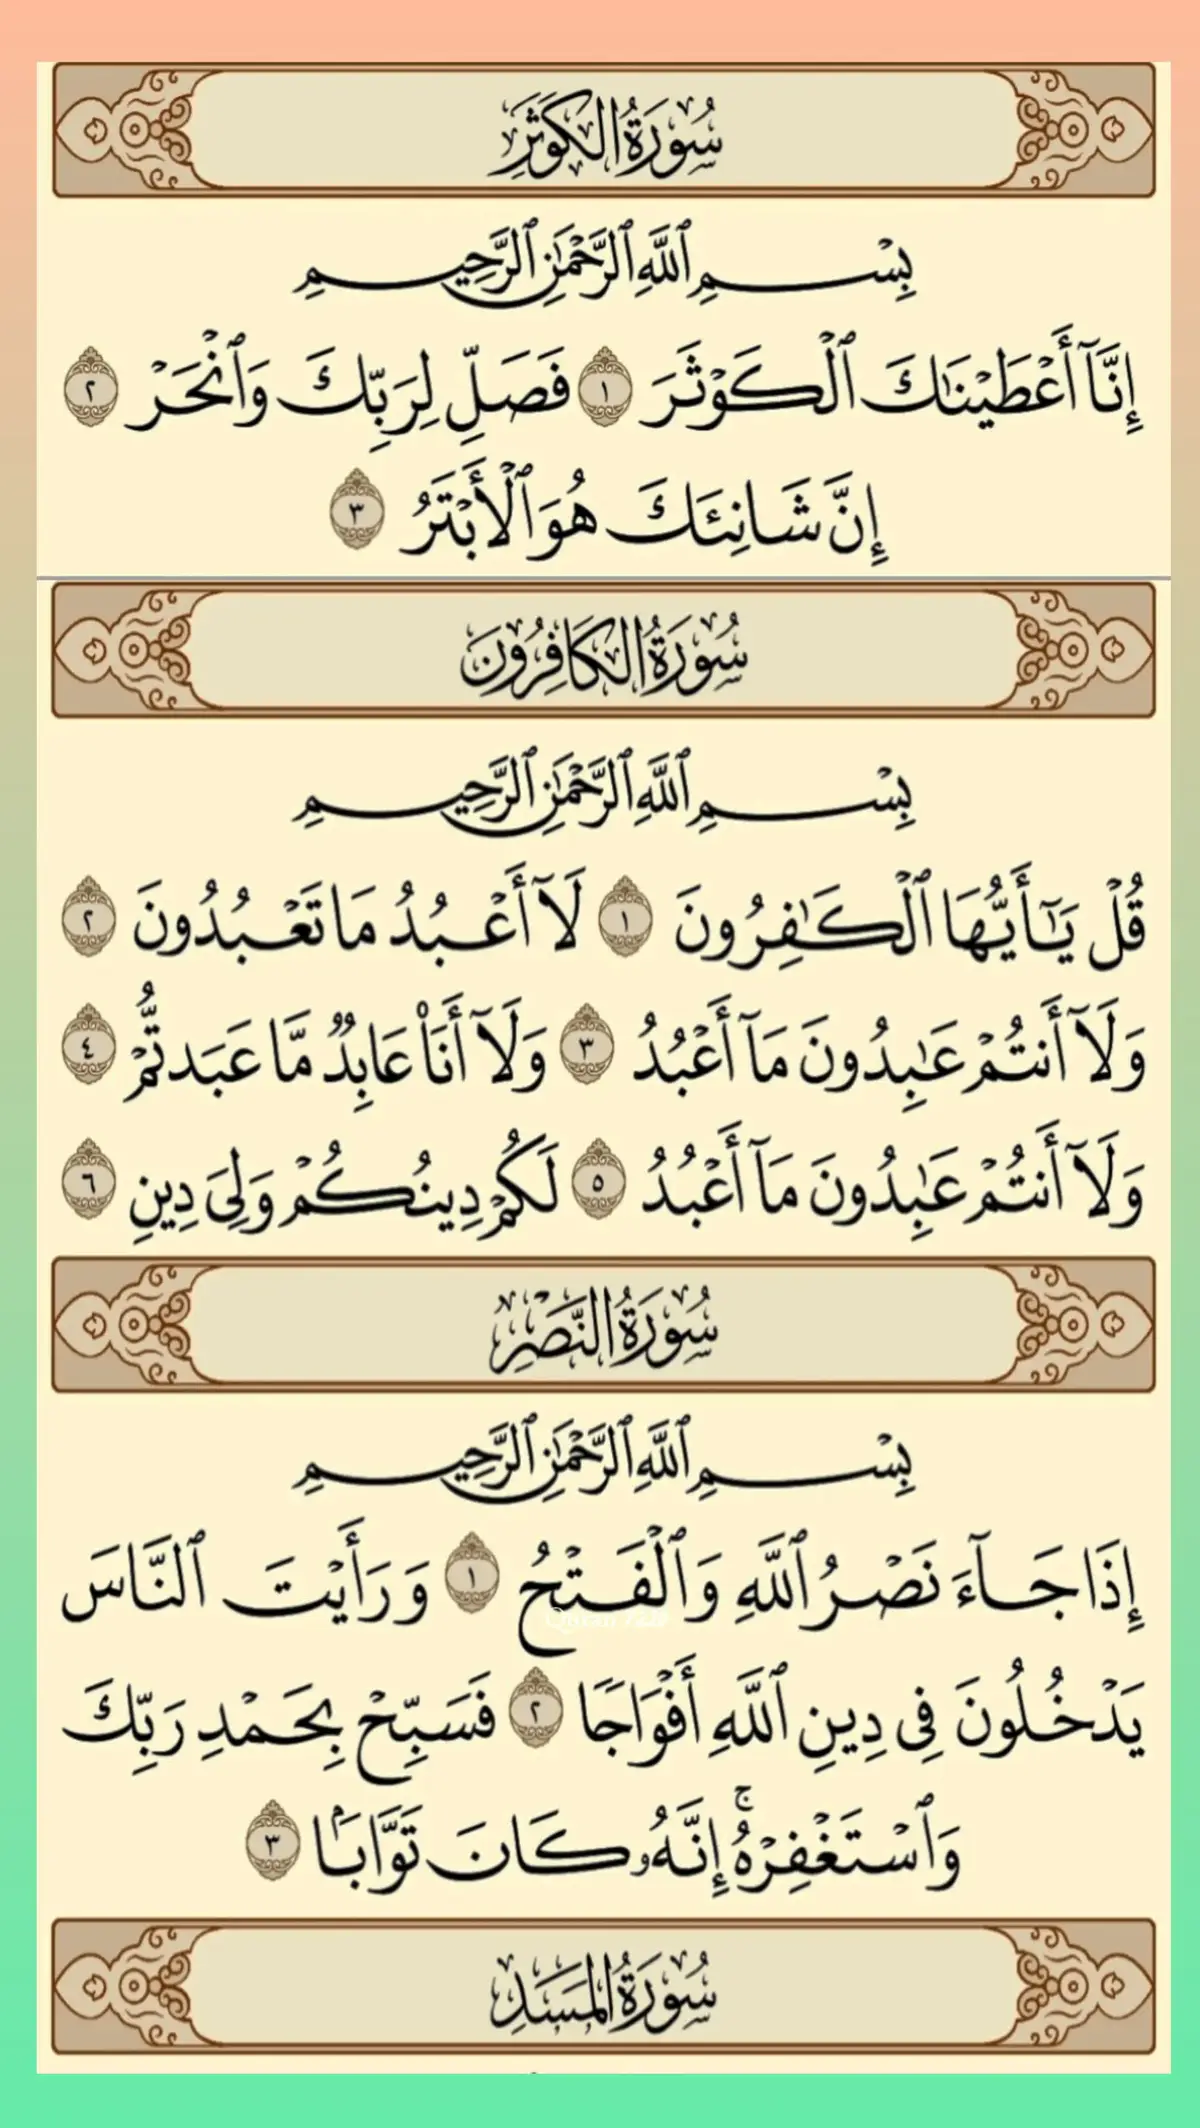 سُورَةُ الكَوثَرِ
بِسْمِ ٱللَّهِ ٱلرَّحْمَٰنِ ٱلرَّحِيمِ
إِنَّآ أَعْطَيْنَٰكَ ٱلْكَوْثَرَ ١ فَصَلِّ لِرَبِّكَ وَٱنْحَرْ ٢
إِنَّ شَانِئَكَ هُوَ ٱلْأَبْتَرُ ٣
سُورَةُ الكَافِرُونَ
بِسْمِ ٱللَّهِ ٱلرَّحْمَٰنِ ٱلرَّحِيمِ
قُلْ يَٰٓأَيُّهَا ٱلْكَٰفِرُونَ ١ لَآ أَعْبُدُ مَا تَعْبُدُونَ ٢
وَلَآ أَنتُمْ عَٰبِدُونَ مَآ أَعْبُدُ ٣ وَلَآ أَنَا۠ عَابِدٌ مَّا عَبَدتُّمْ ٤
وَلَآ أَنتُمْ عَٰبِدُونَ مَآ أَعْبُدُ ٥ لَكُمْ دِينُكُمْ وَلِىَ دِينِ ٦
سُورَةُ النَّصْرِ
بِسْمِ ٱللَّهِ ٱلرَّحْمَٰنِ ٱلرَّحِيمِ
إِذَا جَآءَ نَصْرُ ٱللَّهِ وَٱلْفَتْحُ ١ وَرَأَيْتَ ٱلنَّاسَ
يَدْخُلُونَ فِى دِينِ ٱللَّهِ أَفْوَاجًا ٢ فَسَبِّحْ بِحَمْدِ رَبِّكَ
وَٱسْتَغْفِرْهُۚ إِنَّهُۥ كَانَ تَوَّابًۢا ٣
سُورَةُ المَسَدِ